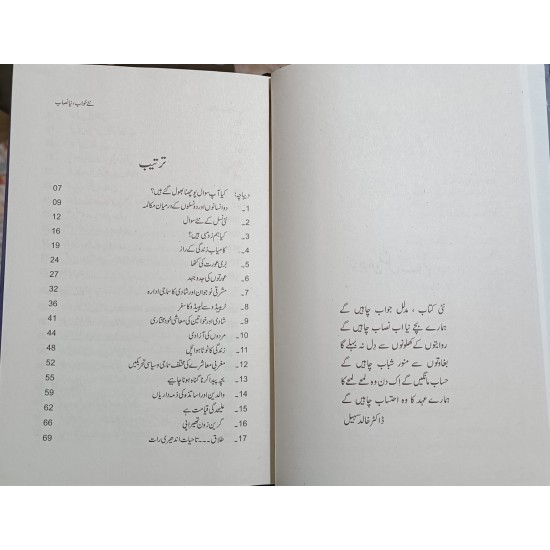 نئے خواب، نیا نصاب
ترتیب
دیباچہ: کیا آپ سوال پوچھنا بھول گئے ہیں؟ 07
1۔ دو انسانوں اور دو نسلوں کے درمیان مکالمہ 09
2۔ نئی نسل کے نئے سوال 12
3۔ کیا ہم نرگسی ہیں؟ 16
4۔ کامیاب زندگی کے راز 19
5۔ بُری عورت کی کتھا 24
6۔ عورتوں کی جدوجہد 27
7۔ مشرقی نوجوان اور شادی کا سماجی ادارہ 32
8۔ سے لبیڈو کا سفر 36
9۔ شادی اور خواتین کی معاشی خود مختاری 41
10۔ مردوں کی آزادی 44
11۔ زندگی کا ٹوٹا ہوا پل 48
12۔ مغربی معاشرے کی مختلف سماجی و سیاسی تحریکیں 52
13۔ بچہ پیدا کرنا گناہ ہونا چاہیے 55
14۔ والدین اور اساتذہ کی ذمہ داریاں 59
15۔ علیحدگی قیامت ہے 62
16۔ گرین زون تھیراپی 66
17۔ طلاق۔۔۔ تاحیات اندھیری رات 69
نئی کتاب ، مدلل جواب چاہیں گے
ہمارے بچے نیا اب نصاب چاہیں گے
روایتوں کے کھلونوں سے دل نہ بہلے گا
بغاوتوں سے منور شباب چاہیں گے
حساب مانگیں گے اک دن وہ لمحے لمحے کا
ہمارے عہد کا وہ احتساب چاہیں گے
ڈاکٹر خالد سہیل